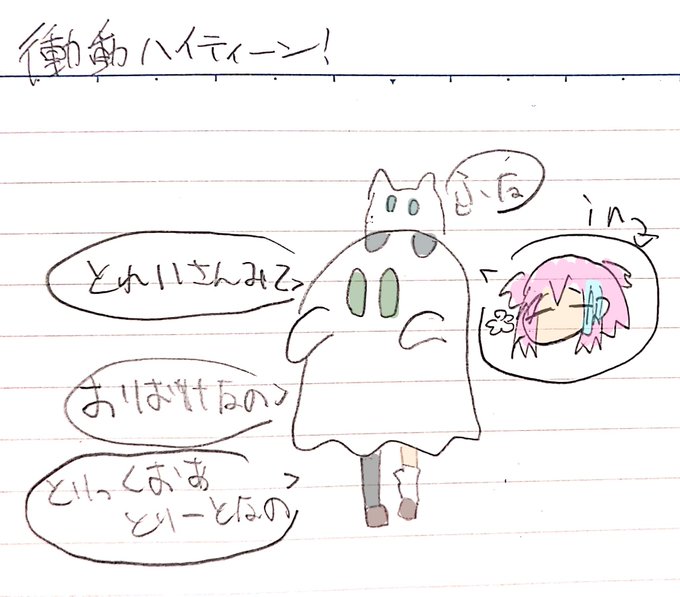 衝動ハイティーン!
ふな
in
とれいさんみて
おりばけなの
とりっくおあ
とりーとなの